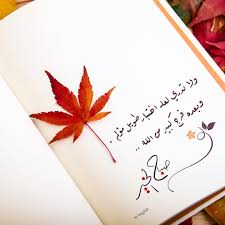 ولا تدري لعله اختبار طويل مؤلم،
وبعده فرج كبير من الله ..
صباح الخير